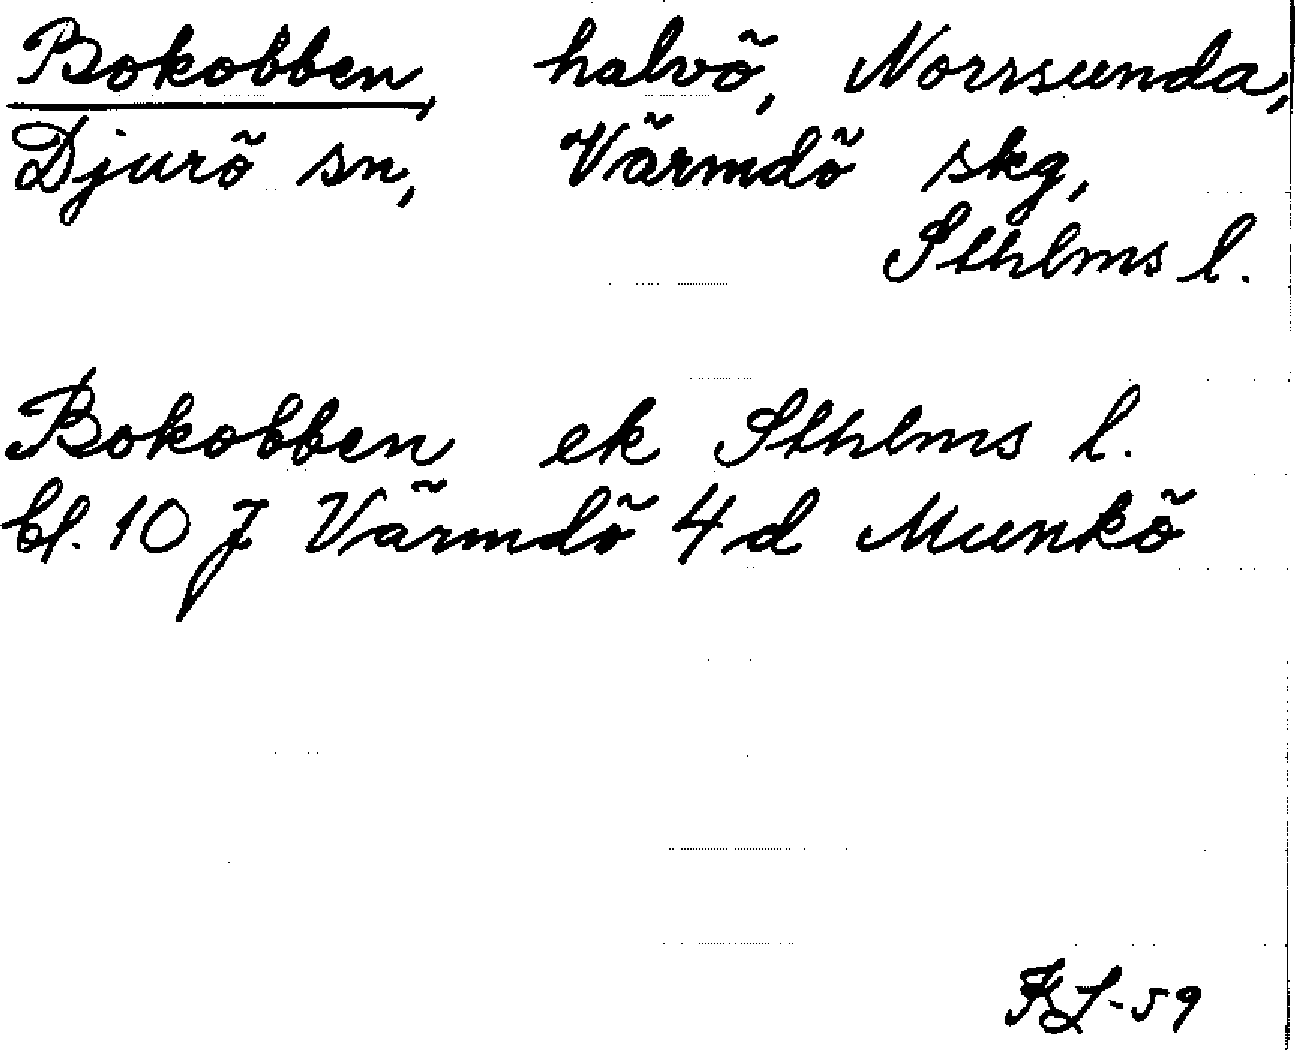 Bokobben, halvö, Norrsunda,
Djurö sn, Värmdö skg,
Sthlms l.
Bokobben ek Sthlms l.
bl. 10 J Värmdö 4 d Munkö
KL-59